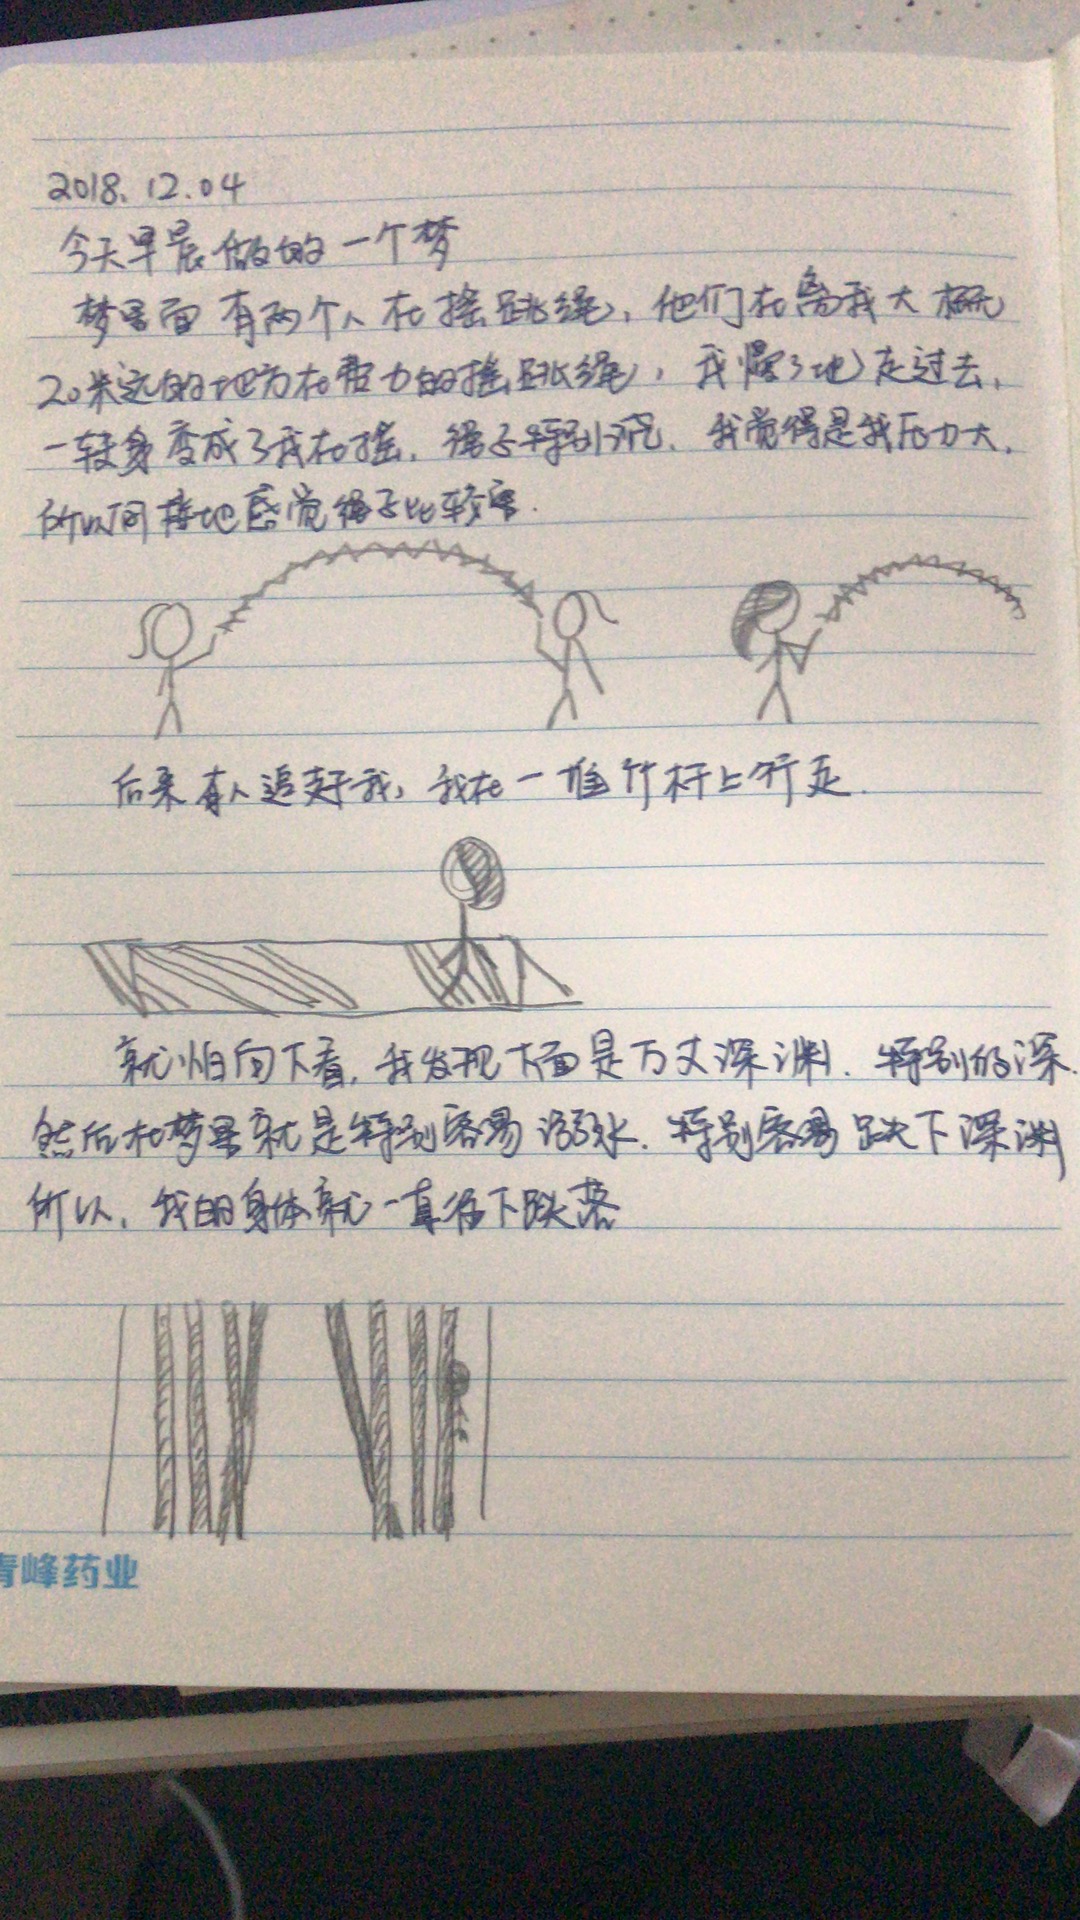 2018.12.04
今天早晨做的一个梦
梦里面有两个人在摇跳绳，他们在离我大概
20米远的地方在费力的摇跳绳，我慢地走过去，
一转身变成了我在摇．绳子特别沉．我觉得是我压力大．
所以间接地感觉绳子比较重．
后来有人追赶我，我在一堆竹杆上行走．
就怕向下看，我发现下面是万丈深渊．特别的深．
然后在梦里就是特别容易溺水．特别容易跌下深渊
所以，我的身体就一直往下跌落
青峰药业